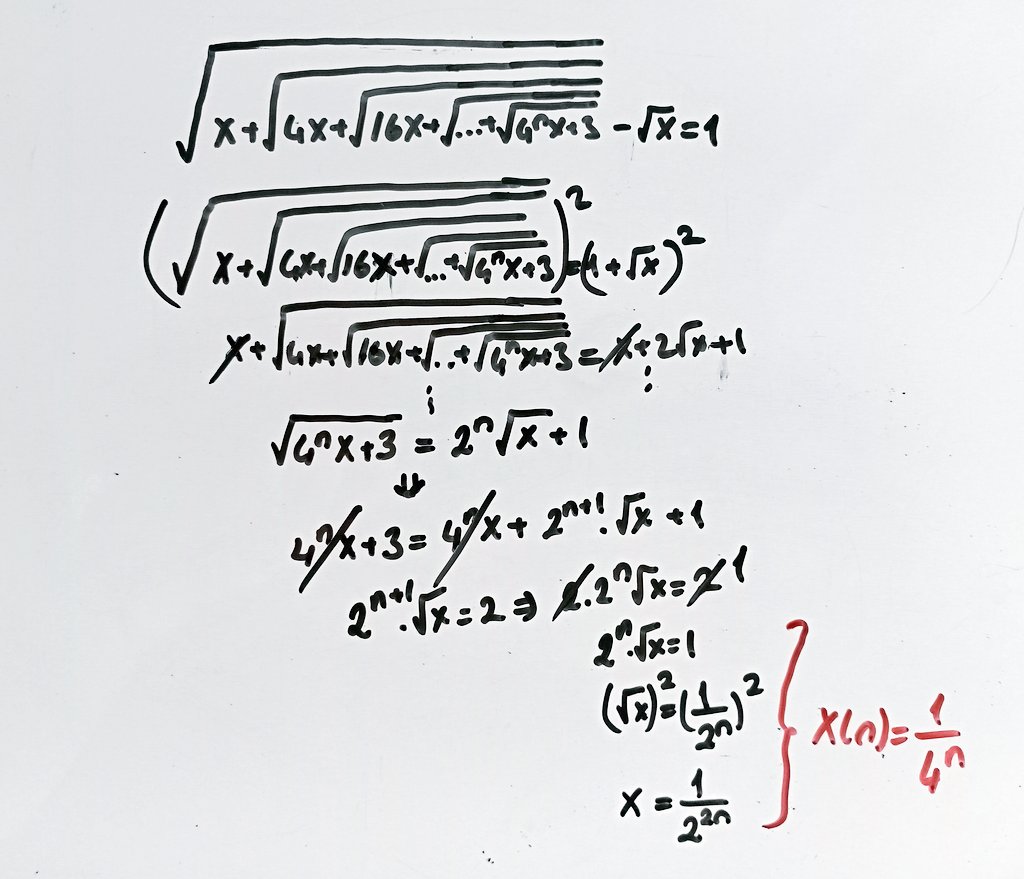 √(x+√(4x+√(16x+√(...+√(4ⁿx+3))))) - √x = 1
(√(x+√(4x+√(16x+√(...+√(4ⁿx+3))))))² = (1+√x)²
x+√(4x+√(16x+√(...+√(4ⁿx+3)))) = x+2√x+1
⋮ ⋮
√(4ⁿx+3) = 2ⁿ√x+1
⇓
4ⁿx+3 = 4ⁿx + 2ⁿ⁺¹.√x + 1
2ⁿ⁺¹.√x = 2 ⇒ 2.2ⁿ√x = 2 1
2ⁿ.√x = 1
(√x)² = (1/2ⁿ)²
x = 1/2²ⁿ
x(n) = 1/4ⁿ